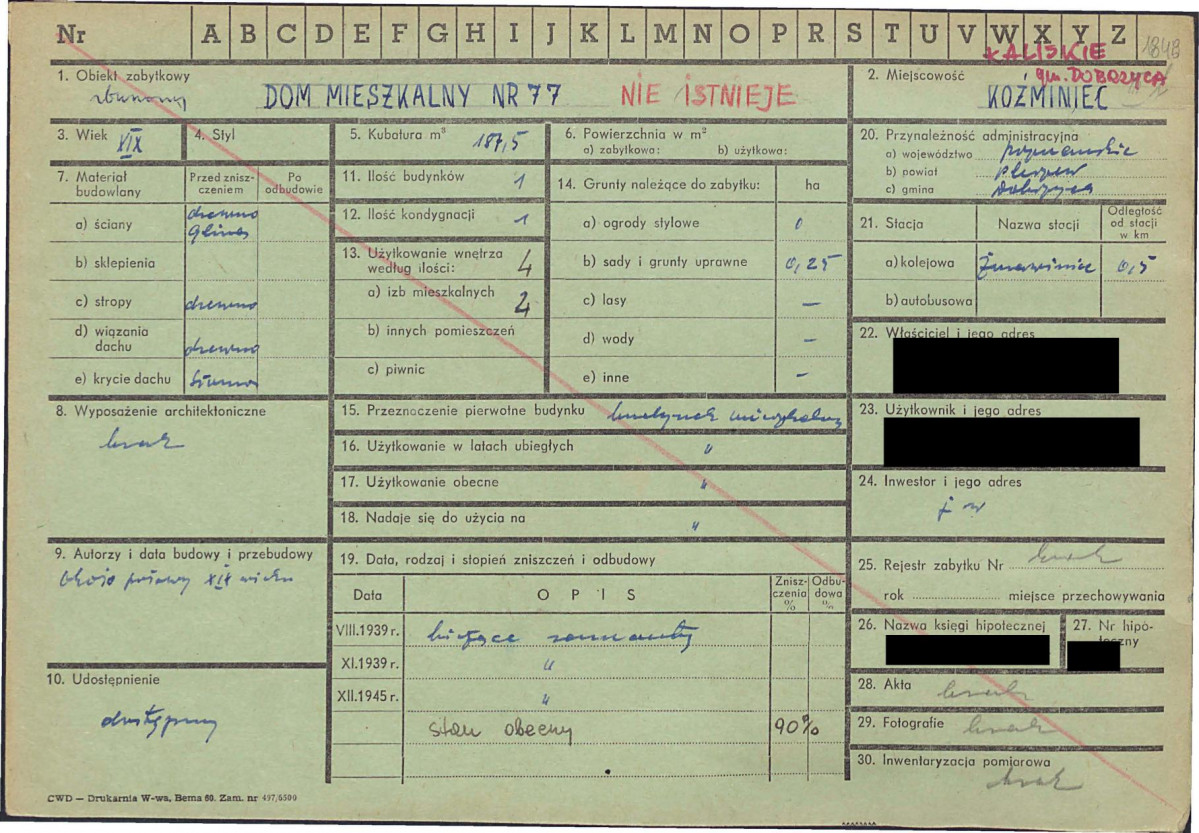 Nr A B C D E F G H I J K L M N O P R S T U V W X Y Z 1848
KALISKIE
gm. DOBRZYCA
1. Obiekt zabytkowy
DOM MIESZKALNY NR 77 NIE ISTNIEJE
2. Miejscowość
KOŹMINIEC
3. Wiek XIX
4. Styl
5. Kubatura m³ 187,5
6. Powierzchnia w m²
a) zabytkowa: b) użytkowa:
7. Materiał budowlany
Przed zniszczeniem
Po odbudowie
a) ściany drewno
glina
b) sklepienia
c) stropy drewno
d) wiązania dachu drewno
e) krycie dachu słoma
8. Wyposażenie architektoniczne
brak
9. Autorzy i data budowy i przebudowy
około połowy XIX wieku
10. Udostępnienie
dostępny
11. Ilość budynków 1
12. Ilość kondygnacji 1
13. Użytkowanie wnętrza według ilości: 4
a) izb mieszkalnych 2
b) innych pomieszczeń
c) piwnic
14. Grunty należące do zabytku: ha
a) ogrody stylowe 0
b) sady i grunty uprawne 0,25
c) lasy —
d) wody —
e) inne —
15. Przeznaczenie pierwotne budynku budynek mieszkalny
16. Użytkowanie w latach ubiegłych "
17. Użytkowanie obecne "
18. Nadaje się do użycia na "
19. Data, rodzaj i stopień zniszczeń i odbudowy
Data OPIS Zniszczenia % Odbudowa %
VIII.1939 r. bieżące remonty
XI.1939 r. "
XII.1945 r. "
stan obecny 90%
20. Przynależność administracyjna
a) województwo poznańskie
b) powiat Pleszew
c) gmina Dobrzyca
21. Stacja Nazwa stacji Odległość od stacji w km
a) kolejowa 0,5
b) autobusowa
22. Właściciel i jego adres
23. Użytkownik i jego adres
24. Inwestor i jego adres
j w
25. Rejestr zabytku Nr brak
rok miejsce przechowywania
26. Nazwa księgi hipotecznej
27. Nr hipoteczny
28. Akta brak
29. Fotografie brak
30. Inwentaryzacja pomiarowa
brak
CWD — Drukarnia W-wa, Bema 60. Zam. nr 497/6500